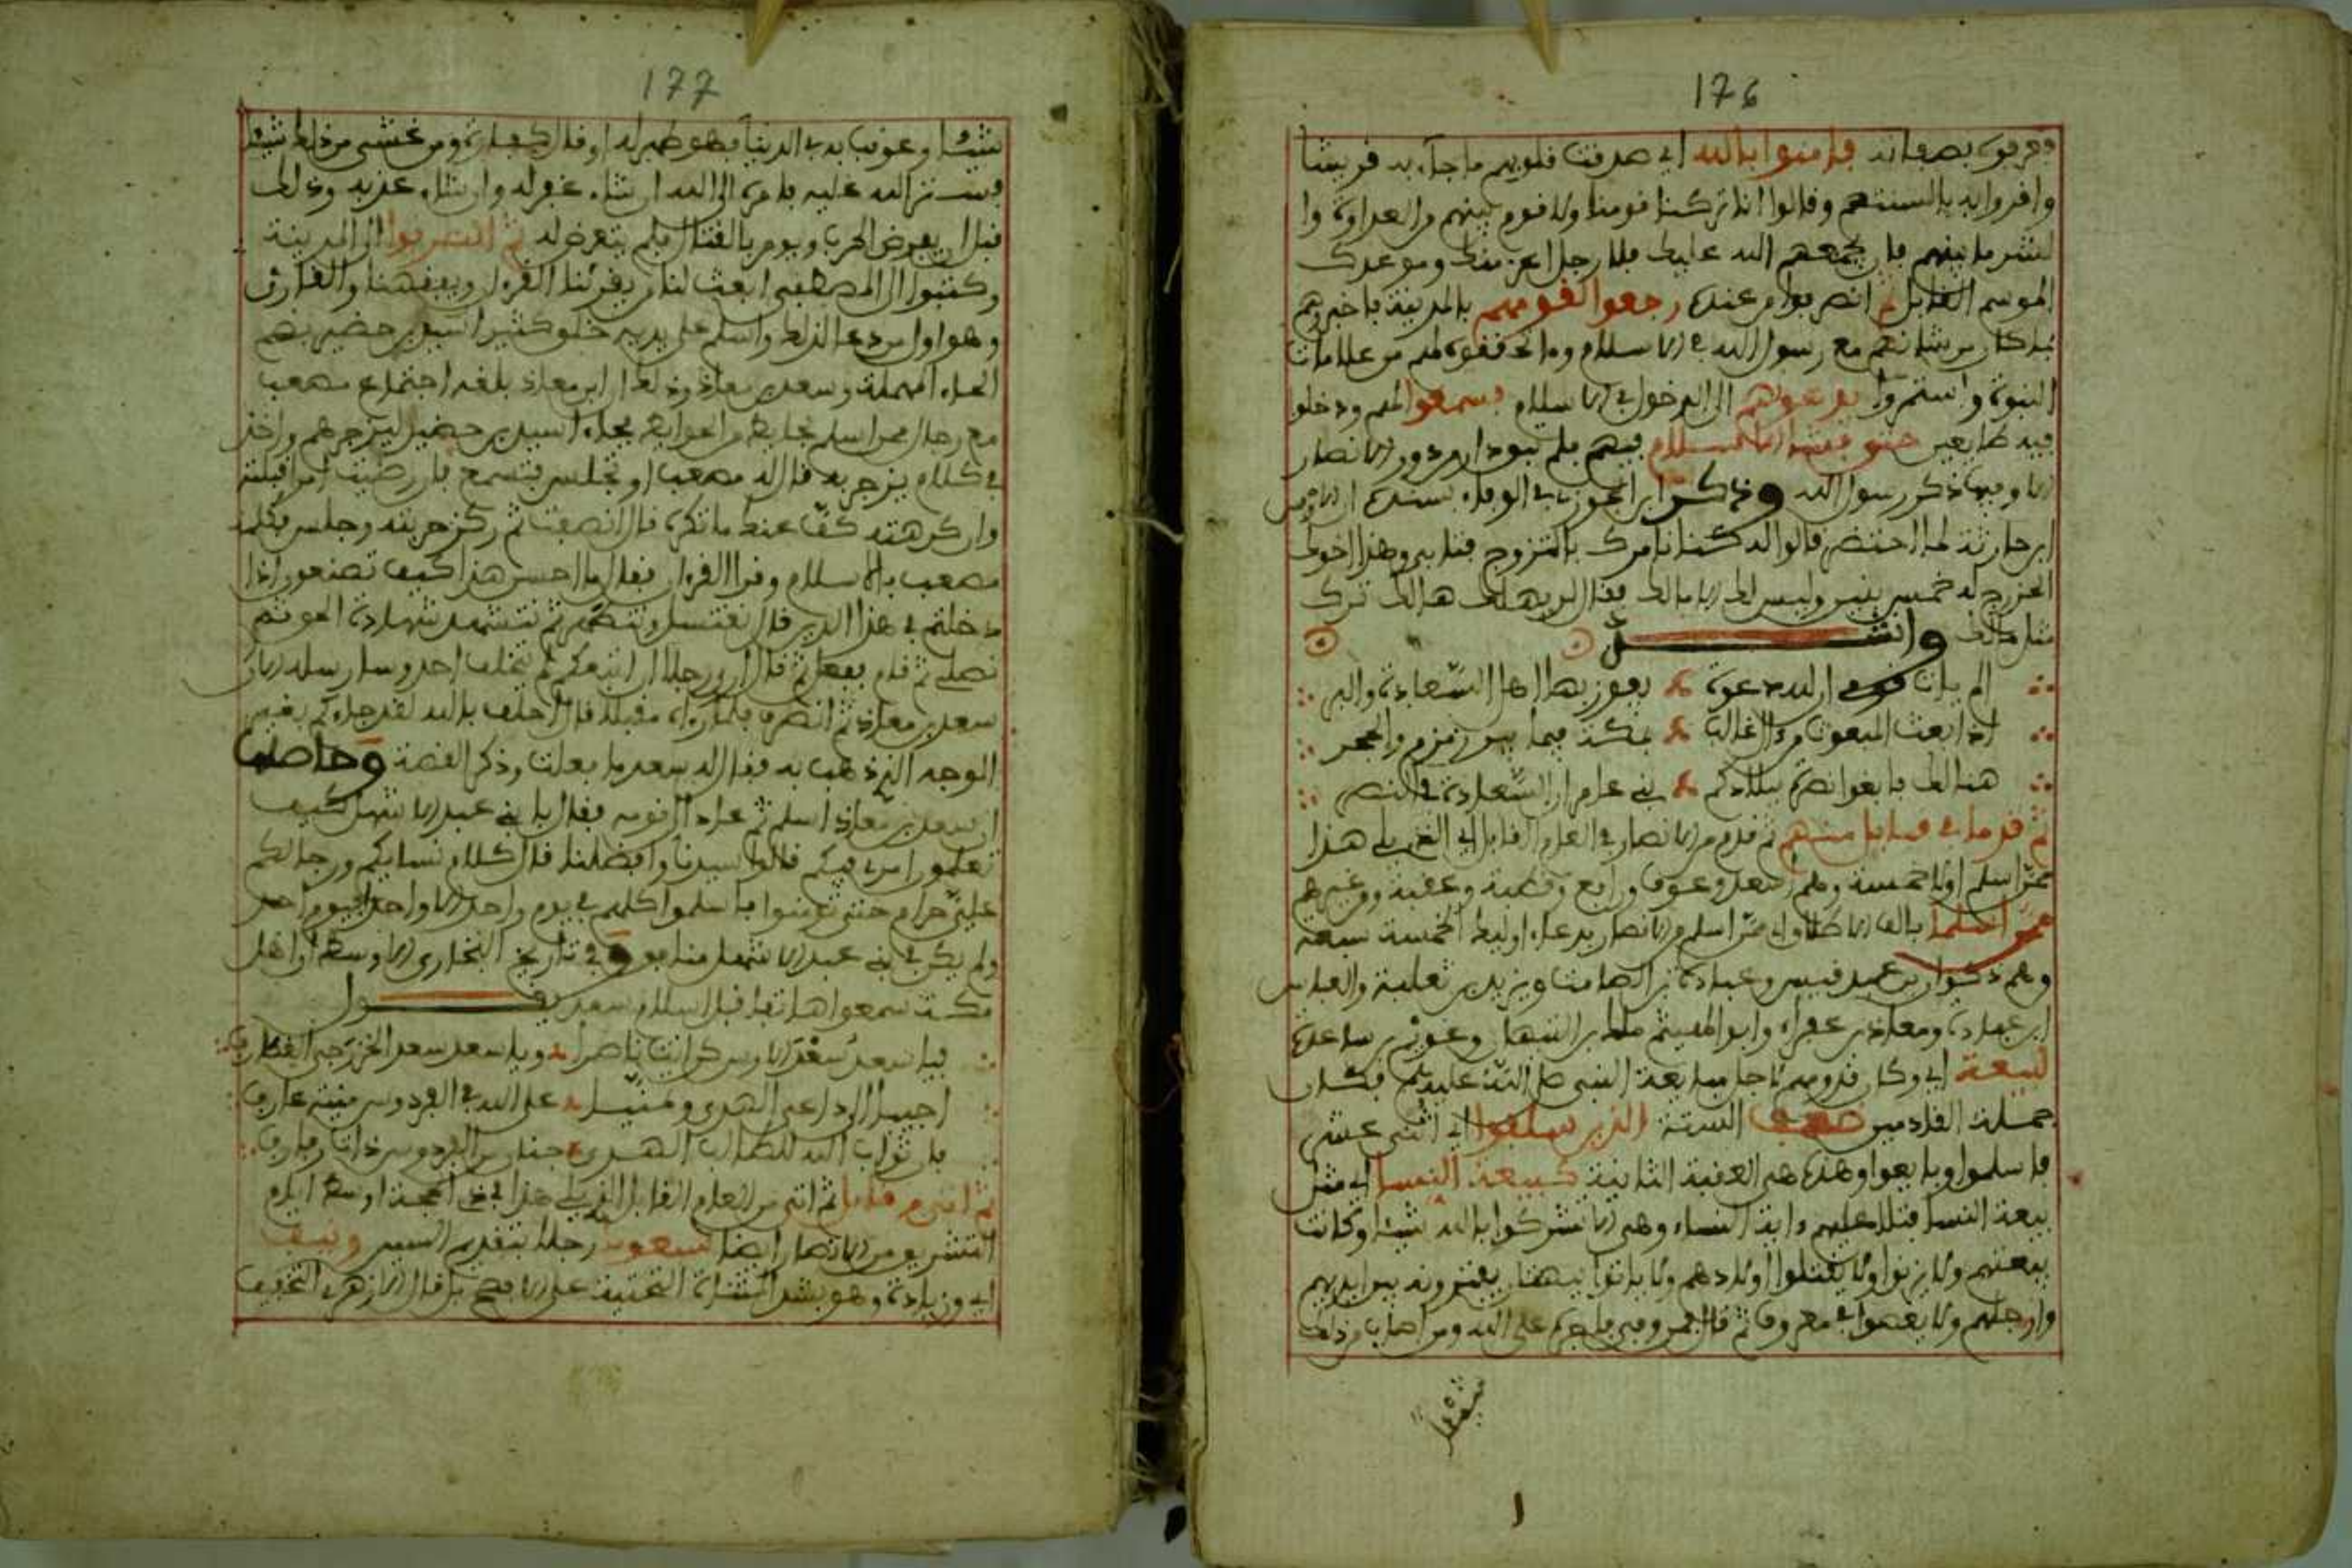 176
وعرفوه بصفاته فـامنوا بالله اي صدقت قلوبهم ما جاء به قريشا
وافروا به بالسنتهم وقالوا انا تركنا قومنا ولا قوم بينهم من العداوة وا
لشر ما بينهم فان يجمعهم الله عليك فلا رجل اعز منك وموعدك
الموسم القابل ثم انصرفوا من عنده رجعوا لقومهم بالمدينة فاخبروهم
بما كان من شانهم مع رسول الله في الاسلام وما تحققوه لهم من علامات
النبوة واستمروا يدعوهم الى الدخول في الاسلام فسمعوا لهم ودخلوا
فيه طايعين حتى فشا الاسلام فيهم فلم تبق دار من دور الانصار
الا وفيها ذكر رسول الله وذكر ابن الجوزي في الوفاء بسنده ان الاوس
ابن حارثة لما احتضر قالوا له كنا نامرك بالتزوج فتابى وهذا اخوك
الخزرج له خمس بنين وليس لك الا مالك فقال لن يهلك هالك ترك
مثل مالك وانشــــد
الم يات قومي ان لله دعوة يفوز بها اهل السعادة والبر
اذا بعث المبعوث من ءال غالب بمكة فيما بين زمزم والحجر
هنالك فابغوا نصره ببلادكم بني عامر ان السعادة في النصر
ثم قدما في قابل منهم ثم قدم من الانصار في العام القابل اي الذي يلي هذا
ممن اسلم اولا خمسة وهم اسعد وعوف ورافع وقطبة وعقبة ومن غيرهم
ممن اسلما بالف الاطلاق اي ممن اسلم من الانصار بدعاء اوليك الخمسة سبعة
وهم ذكوان بن عبد قيس وعبادة بن الصامت ويزيد بن ثعلبة والعباس
ابن عبادة ومعاذ بن عفراء وابو الهيثم مالك بن التيهان وعويم بن ساعدة
لبيعة اي وكان قدومهم لاجل مبايعة النبي صلى الله عليه وسلم فكان
جملة القادمين ضعف الستة الذين سلفوا اي اثنى عشر
فاسلموا وبايعوا وهذه هي العقبة الثانية كبيعة النسا اي مثل
بيعة النسا فتلا عليهم ءاية النساء وهي الا تشركوا بالله شيئا وكانت
بيعتهم ولا يزنوا ولا يقتلوا اولادهم ولا ياتوا ببهتان يفترونه بين ايديهم
وارجلهم ولا يعصوا في معروف ثم قال فمن وفى فاجره على الله ومن اصاب من ذلك
شيئا
177
شيئا وعوقب به في الدنيا فهو طهر له او قال كفارة ومن غشى من ذلك شيئا
فستره الله عليه فامره الى الله ان شاء غفر له وان شاء عذبه وذلك
قبل ان يفرض الحرب ويومر بالقتال فلم يتعرض له ثم انصرفوا الى المدينة
وكتبوا الى المصطفى ابعث لنا من يقرئنا القرءان ويفقهنا والقارئ
وهو اول من دعا لذلك واسلم على يديه خلق كثير اسيد بن حضير بضم
الحاء المهملة وسعد بن معاذ وذلك ان ابن معاذ بلغه اجتماع مصعب
مع رجال ممن اسلم بحايط من حوايط فجاء اسيد بن حضير ليزجرهم واخذ
في كلام يزجر به فقال له مصعب او تجلس فتسمع فان رضيت امرا قبلته
وان كرهته كف عنك ما تكره قال انصفت ثم ركز حربته وجلس فكلمه
مصعب بالاسلام وقرا القرءان فقال ما احسن هذا كيف تصنعون اذا
دخلتم في هذا الدين قال تغتسل وتتطهر ثم تتشهد شهادة الحق ثم
تصلي ثم قام ففعل ثم قال ان رجلا ان اتبعكم لم يتخلف احد وسارسله الان
سعد بن معاذ ثم انصرف فلما رءاه مقبلا قال احلف بالله لقد جاءكم بغير
الوجه الذي ذهب به فقال له سعد ما فعلت وذكر القصة وحاصلها
ان سعد بن معاذ اسلم ثم عاد الى قومه فقال يا بني عبد الاشهل كيف
تعلمون امري فيكم قالوا سيدنا وافضلنا قال كلام نسايكم ورجالكم
علي حرام حتى تومنوا فاسلموا كلهم في يوم واحد الا واحدا فيوم احد
ولم يكن في بني عبد الاشهل منافق وفي تاريخ البخاري الاوسط ان اهل
مكة سمعوا هاتفا قبل اسلام سعد يقــــول
فيا سعد سعد الاوس كن انت ناصرا ويا سعد سعد الخزرجين الغطارف
اجيبا الى داعي الهدى وتمنيا على الله في الفردوس منية عارف
فان ثواب الله للطالب الهدى جنان من الفردوس ذات رفارف
ثم اتى من قابل ثم اتى من العام القابل الذي يلي هذا في ذي الحجة اوسط ايام
التشريق من الانصار ايضا سبعون رجلا بتقديم السين ونيف
اي وزيادة وهو بشد المثناة التحتية على الافصح بل قال الازهري التخفيف